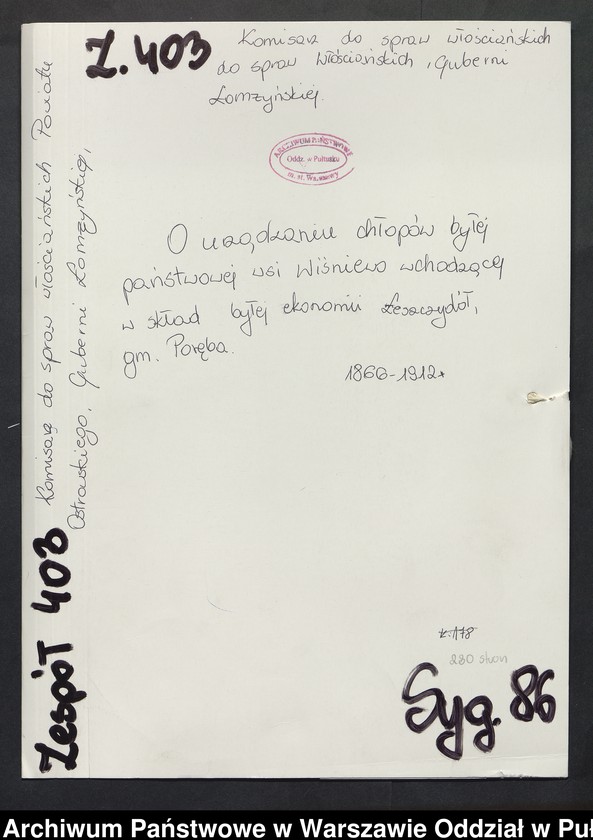 Z. 403
Komisarz do spraw włościańskich
do spraw włościańskich, Guberni
Łomżyńskiej.
ARCHIWUM PAŃSTWOWE
Oddz. w Pułtusku
m. st. Warszawy
O urządzaniu chłopów byłej
państwowej wsi Wiśniewo wchodzącej
w skład byłej ekonomii Leszczydół,
gm. Poręba.
1866-1912r
Komisarz do spraw włościańskich Powiatu
Ostrowskiego, Guberni Łomżyńskiej,
Zespół 403
k. 178
280 stron
Syg. 86
Archiwum Państwowe w Warszawie Oddział w Puł